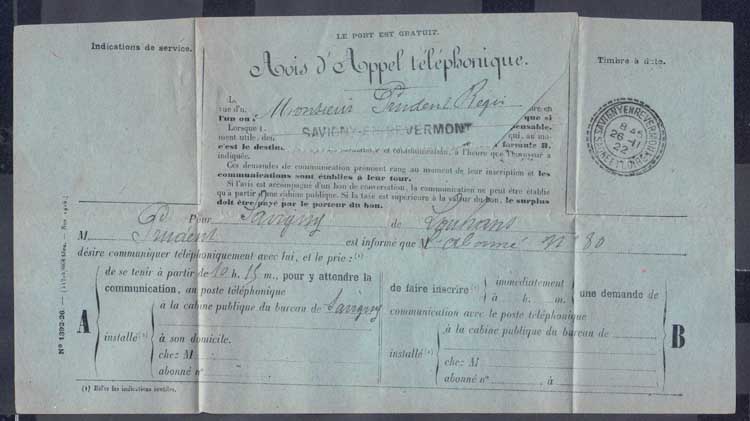 LE PORT EST GRATUIT.
Indications de service.
Avis d'Appel téléphonique.
Timbre à date.
Monsieur Prudent Regis
SAVIGNY-EN-REVERMONT
SAVIGNY EN REVERMONT
8 45
26 -11
22
l'un ou
que si
Lorsque
ment utile, des
qui, au
formule B,
c'est le destin
à l'heure que l'annexe a
indiquée.
Ces demandes de communication prennent rang au moment de leur inscription et les
communications sont établies à leur tour.
Si l'avis est accompagné d'un bon de conversation, la communication ne peut être établie
qu'à partir d'une cabine publique. Si la taxe est supérieure à la valeur du bon, le surplus
doit être payé par le porteur du bon.
Pour Savigny de Louhans
M Prudent est informé que M abonné n° 80
désire communiquer téléphoniquement avec lui, et le prie: (1)
A
de se tenir à partir de 10 h. 15 m., pour y attendre la
communication, au poste téléphonique
installé (1)
à la cabine publique du bureau de Savigny
à son domicile.
chez M
abonné n°
de faire inscrire (1)
immédiatement
à h. m.
une demande de
communication avec le poste téléphonique
installé (1)
à la cabine publique du bureau de
chez M
abonné n° , à
B
(1) Biffer les indications inutiles.
N° 1392-26.